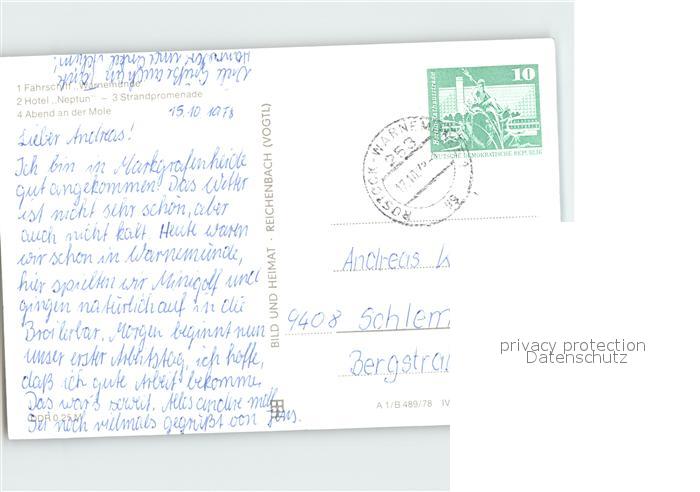 Viele Grüße auch an
1 Fahrschiff „Warnemünde“
2 Hotel „Neptun“ – 3 Strandpromenade
4 Abend an der Mole
15.10.1978
Lieber Andreas!
Ich bin in Markgrafenheide
gut angekommen. Das Wetter
ist nicht sehr schön, aber
auch nicht kalt. Heute waren
wir schon in Warnemünde,
hier spielten wir Minigolf und
gingen natürlich auf in die
Broilerbar. Morgen beginnt nun
unser erster Arbeitstag, ich hoffe,
daß ich gute Arbeit bekomme.
Das war's soweit. Alles andere mdl.
Sei noch vielmals gegrüßt von
DDR 0,25 M
BILD UND HEIMAT · REICHENBACH (VOGTL)
10
DEUTSCHE DEMOKRATISCHE REPUBLIK
ROSTOCK-WARNEM
253
Andreas
9408 Schlem
Bergstra
A 1/B 489/78 IV
privacy protection
Datenschutz